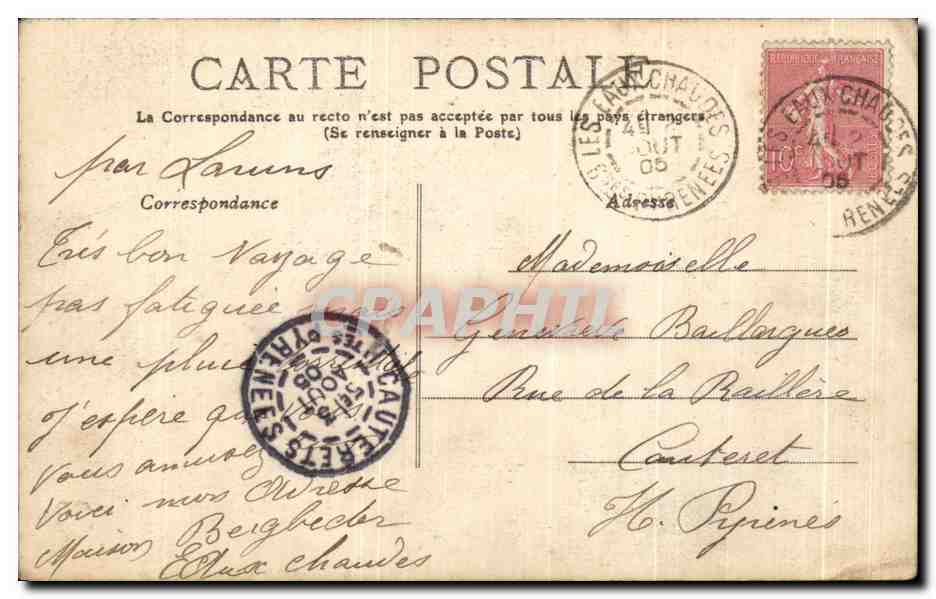 CARTE POSTALE
La Correspondance au recto n'est pas acceptée par tous les pays étrangers.
(Se renseigner à la Poste)
par Laruns
Correspondance
Adresse
Très bon Voyage
pas fatiguée mais
une pluie
J'espère que vous
vous amusez
Voici mon Adresse
Maison Beigbeder
Eaux chaudes
Mademoiselle
Geneviève Baillargues
Rue de la Raillère
Cauteret
H. Pyrénés
LES EAUX-CHAUDES
AOUT
05
BSES PYRENEES
REPUBLIQUE FRANÇAISE
10c
LES EAUX-CHAUDES
AOUT
05
PYRENEES
CAUTERETS
AOUT
05
HTES PYRENEES
CPAPHIL